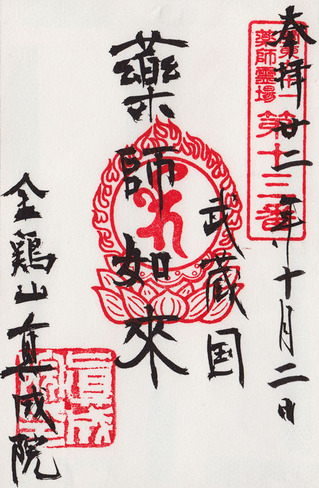 奉拝 廿二年十月二日
藥師霊場
第十三番
武蔵国
藥師如來
金鶏山真成院